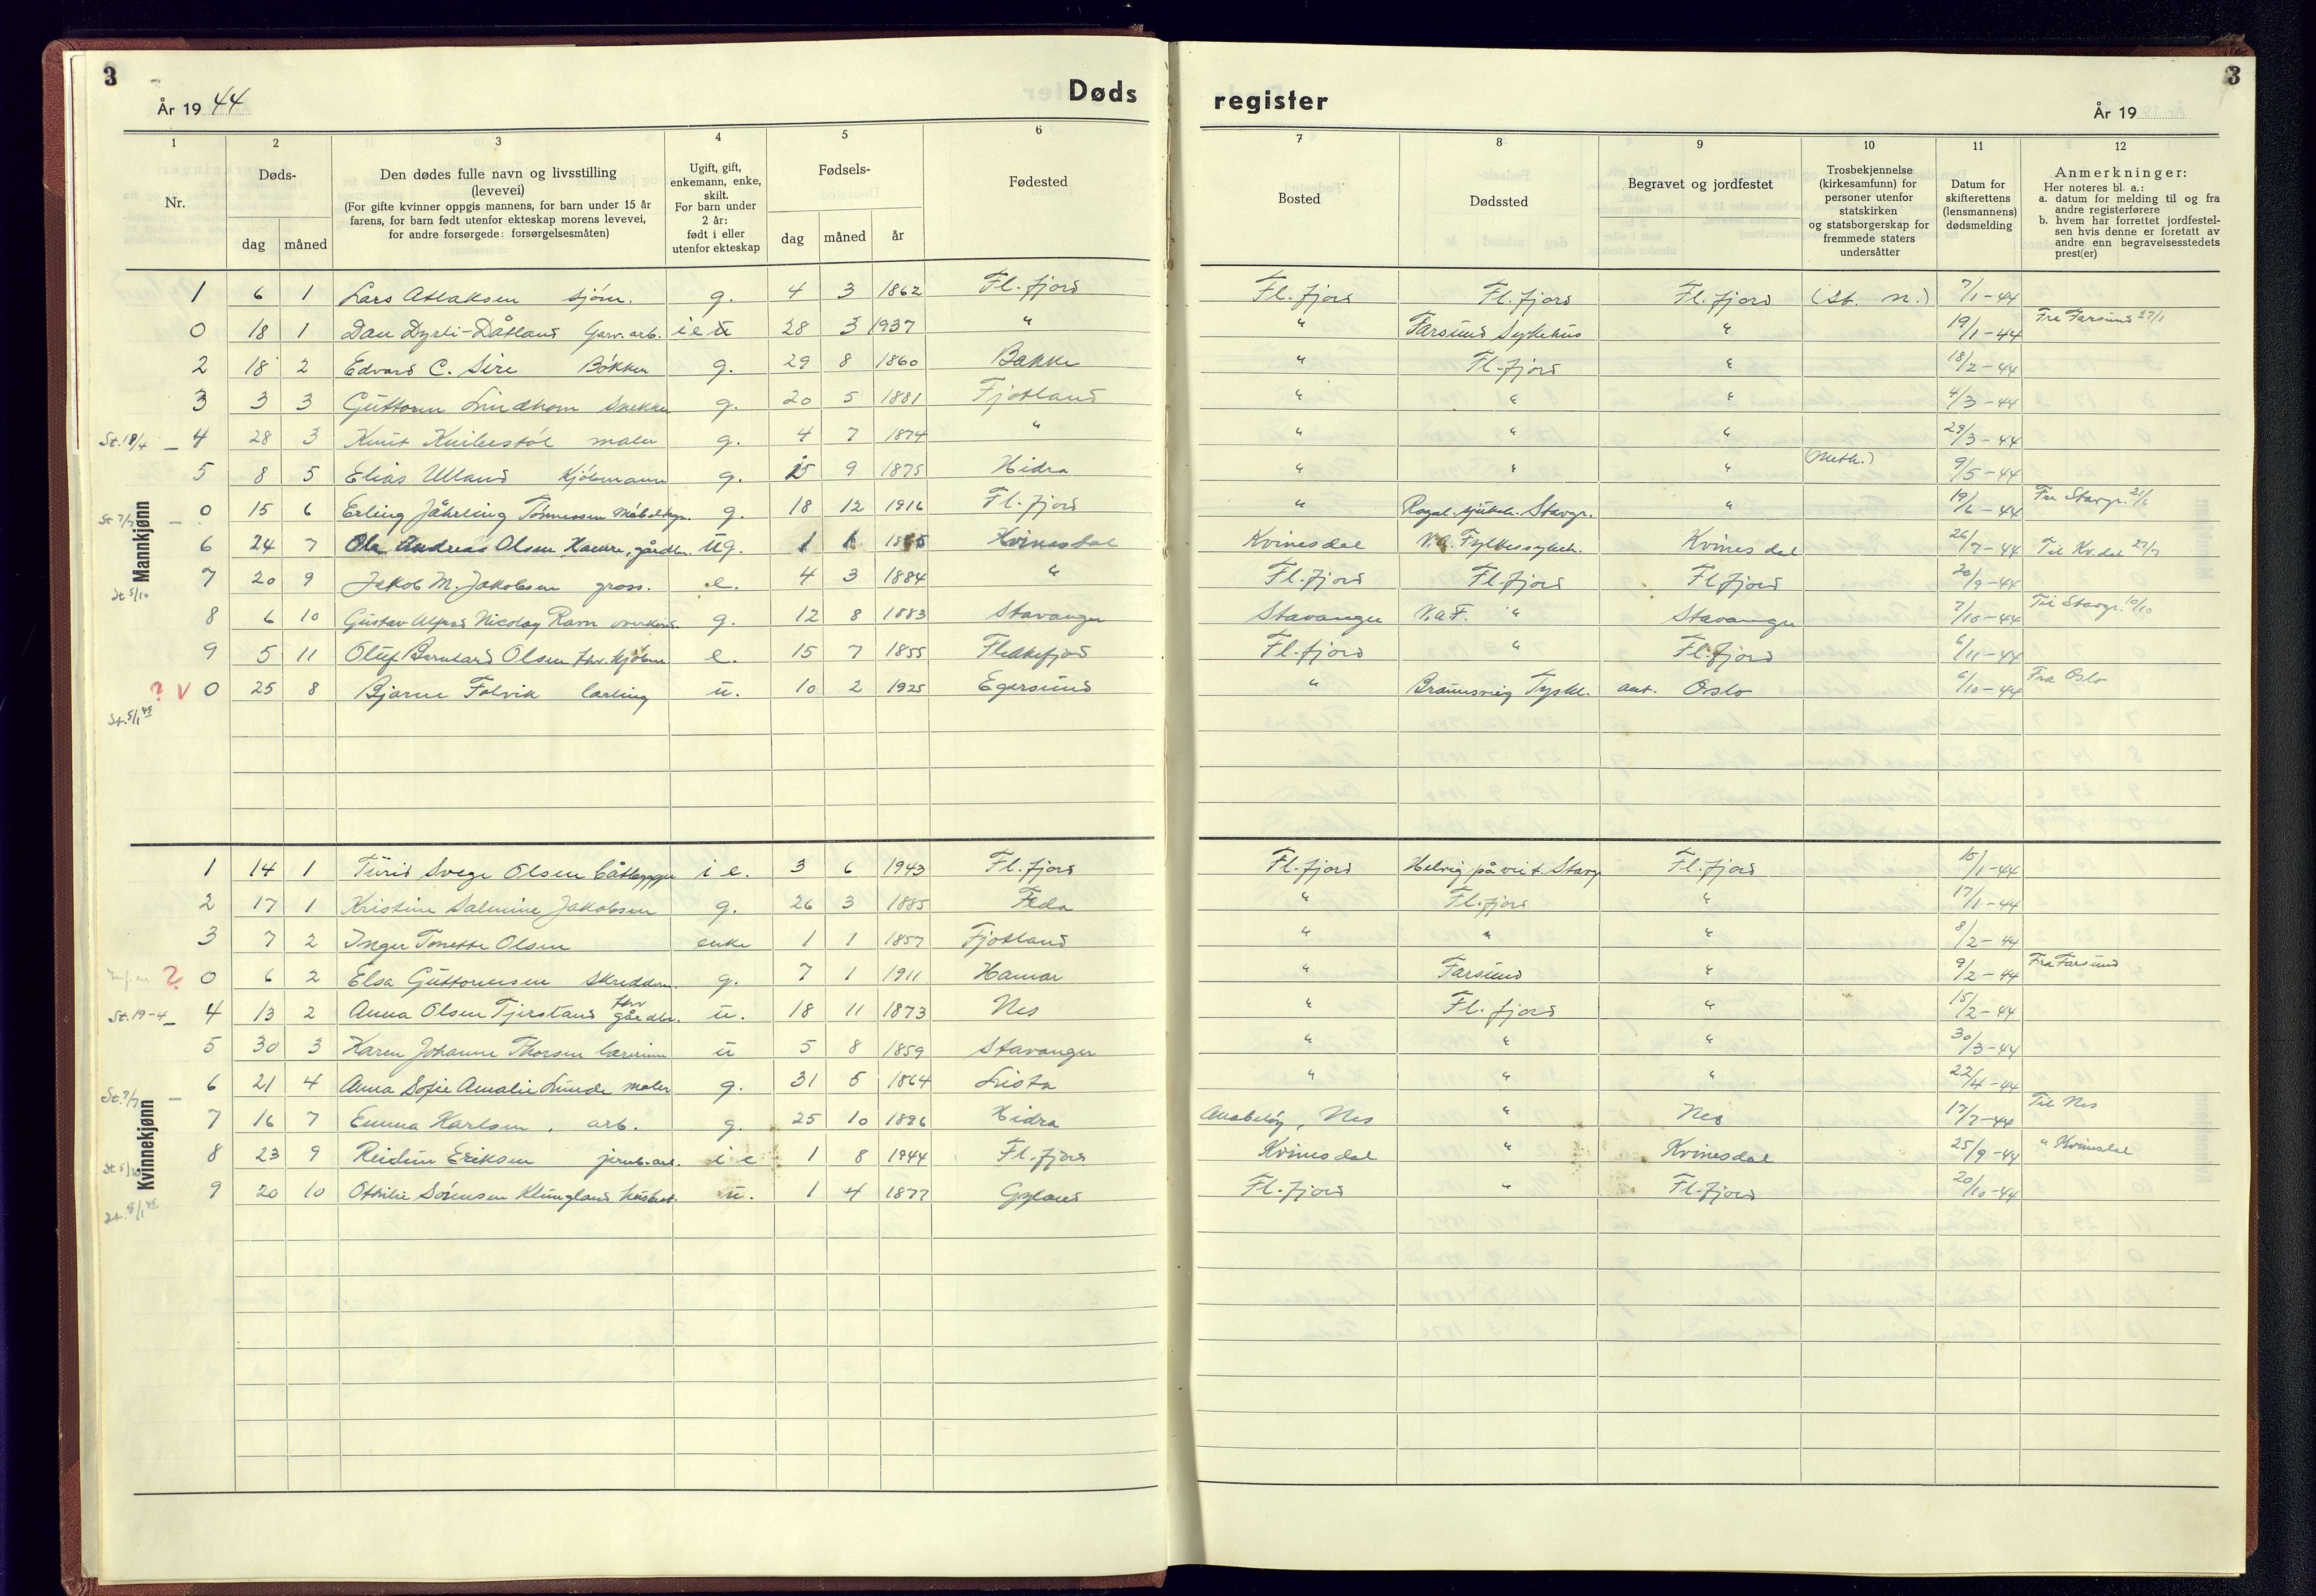 3
År 19 44
Døds
register
År 19
3
1 2 3 4 5 6 7 8 9 10 11 12
Nr.
Døds-
dag måned
Den dødes fulle navn og livsstilling
(levevei)
(For gifte kvinner oppgis mannens, for barn under 15 år
farens, for barn født utenfor ekteskap morens levevei,
for andre forsørgede: forsørgelsesmåten)
Ugift, gift,
enkemann, enke,
skilt.
For barn under
2 år:
født i eller
utenfor ekteskap
Fødsels-
dag måned år
Fødested
Bosted
Dødssted
Begravet og jordfestet
Trosbekjennelse
(kirkesamfunn) for
personer utenfor
statskirken
og statsborgerskap for
fremmede staters
undersåtter
Datum for
skifterettens
(lensmannens)
dødsmelding
Anmerkninger:
Her noteres bl. a.:
a. datum for melding til og fra
andre registerførere
b. hvem har forrettet jordfestel-
sen hvis denne er foretatt av
andre enn begravelsesstedets
prest(er)
Mannkjønn
1 6 1 Lars Atlaksen sjøm. g. 4 3 1862 Fl.fjord Fl.fjord Fl.fjord Fl.fjord 7/1-44
0 18 1 Dan Dyrli-Dåtland Garv.arb. i e 28 3 1937 " " Farsund Sykehus " 19/1-44 Fra Farsund 27/1
2 18 2 Edvard C. Sire Bøkker g. 29 8 1860 Bakke " Fl.fjord " 18/2-44
3 3 3 Guttorm Lindhom Snekker g. 20 5 1881 Fjotland " " " 4/3-44
4 28 3 Knut maler g. 4 7 1874 " " " " 29/3-44
5 8 5 Elias Ulland Kjøbmann g. 15 9 1875 Hidra " " " (Meth.) 9/5-44
St 7/7 0 15 6 Erling Jährling Tønnessen g. 18 12 1916 Fl.fjord " Rogal. sjukeh. Stavgr. " 19/6-44 Fra Stavgr. 21/6
6 24 7 Ola Andreas Olsen Hamre, gårdbr. ug. 1 1 Kvinesdal Kvinesdal V.A. Fylkessykeh. Kvinesdal 26/7-44 Til Kv.dal 27/7
St 5/10 7 20 9 Jakob M. Jakobsen gross. e. 4 3 1884 " Fl.fjord Fl.fjord Fl.fjord 20/9-44
8 6 10 Gustav Alfred Nicolay Ravn g. 12 8 1883 Stavanger Stavanger V.A.F. " Stavanger 7/10-44 Til Stavgr. 10/10
9 5 11 Oluf Bernhard Olsen fhv. kjøbm e. 15 7 1855 Flekkefjord Fl.fjord " Fl.fjord 6/11-44
? V 0 25 8 Bjarne Følvik lærling u. 10 2 1925 Egersund " Braunsvieg Tyskl. ant. Oslo 6/10-44 Fra Oslo
St. 5/1 45
Kvinnekjønn
1 14 1 Turid Svege Olsen båtbygger i e. 3 6 1943 Fl.fjord Fl.fjord Helvig på vei t. Stavg Fl.fjord 15/1-44
2 17 1 Kristine Salmine Jakobsen g. 26 3 1885 Feda " Fl.fjord " 17/1-44
3 7 2 Inger Tonette Olsen enke 1 1 1857 Fjotland " " " 8/2-44
? 0 6 2 Elsa Guttormsen Skreddern. g. 7 1 1911 Hamar " Farsund " 9/2-44 Fra Farsund
St. 19-4 4 13 2 Anna Olsen Tjersland fhv gårdbr. u. 18 11 1873 Nes " Fl.fjord " 15/2-44
5 30 3 Karen Johanne Thorsen lærerinne u 5 8 1859 Stavanger " " " 30/3-44
St. 7/7 6 21 4 Anna Sofie Amalie Lunde maler g. 31 5 1864 Lista " " " 22/4-44
7 16 7 Emma Karlsen, arb. g. 25 10 1896 Hidra Anabeløy, Nes " Nes 17/7-44 Til Nes
St 5/10 8 23 9 Reidun Eriksen jernb.arb. i e 1 8 1944 Fl.fjord Kvinesdal " Kvinesdal 25/9-44 " Kvinesdal
9 20 10 Othilie Sørensen Klungland husbest. u. 1 4 1877 Gyland Fl.fjord " Fl.fjord 20/10-44
St. 5/1 45